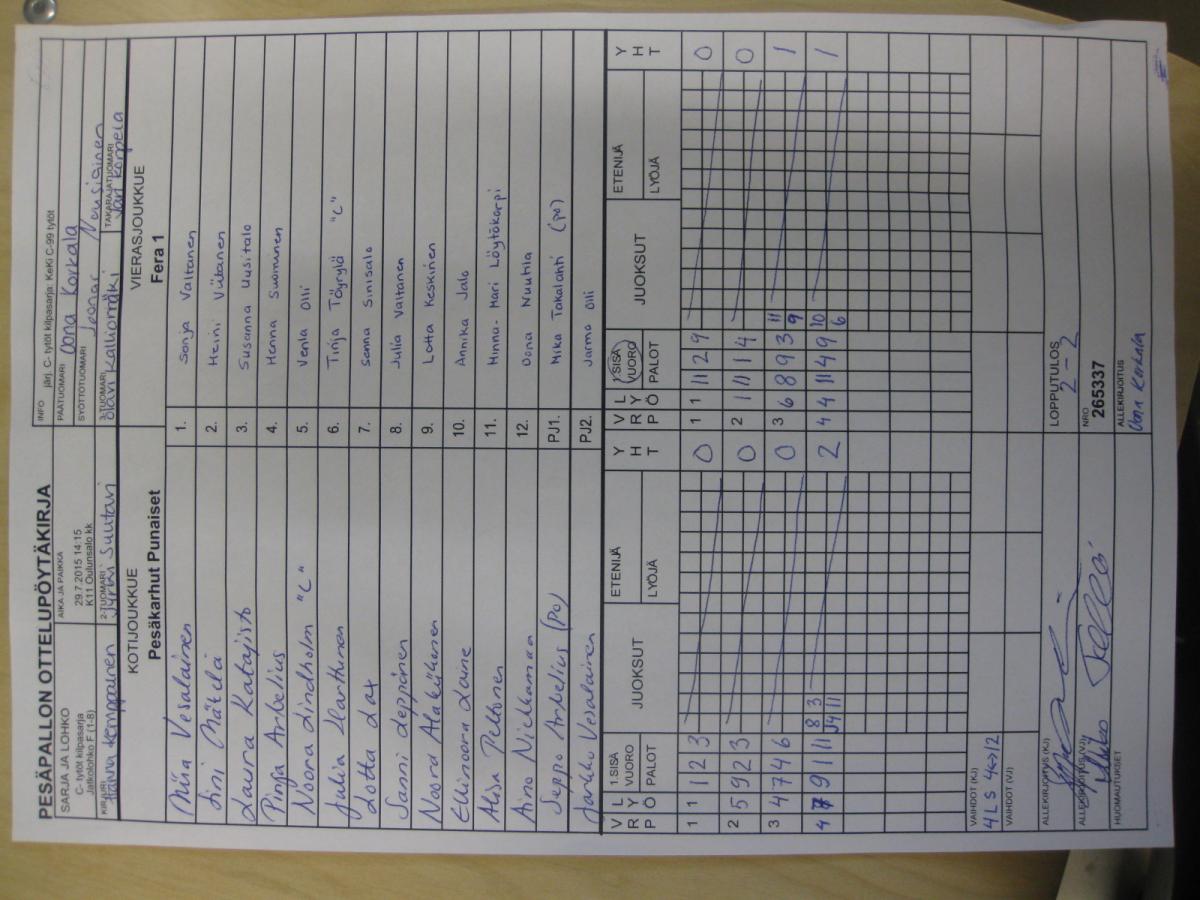 PESÄPALLON OTTELUPÖYTÄKIRJA
INFO järj. C- tytöt kilpasarja: KeKi C-99 tytöt
SARJA JA LOHKO
C- tytöt kilpasarja
Jatkolohko F (1-8)
AIKA JA PAIKKA
29.7.2015 14:15
K11 Oulunsalo kk
PÄÄTUOMARI Oona Korkala
SYÖTTÖTUOMARI Joonas Nousiainen
KIRJURI Hanna Kemppainen
2-TUOMARI Jyrki Suutari
3-TUOMARI Olavi Kalliomäki
TAKARAJATUOMARI Jari Korpela
KOTIJOUKKUE
Pesäkarhut Punaiset
VIERASJOUKKUE
Fera 1
Miia Vesalainen 1. Sonja Valtanen
Iini Mäkelä 2. Heini Viitanen
Laura Katajisto 3. Susanna Uusitalo
Pinja Arbelius 4. Henna Suominen
Noora Lindholm "C" 5. Venla Olli
Julia Hanttunen 6. Tinja Töyrylä "C"
Lotta Lax 7. Senna Sinisalo
Sanni Leppinen 8. Julia Valtanen
Noora Ala-Kiikonen 9. Lotta Keskinen
Ellinoora Laine 10. Annika Jalo
Alisa Peltonen 11. Minna-Mari Löytökorpi
Aino Niekkamaa 12. Oona Nuutila
Seppo Arbelius (PO) PJ1. Mika Takalahti (po)
Jarkko Vesalainen PJ2. Jarmo Olli
V L R Y P Ö 1.SISÄ VUORO PALOT JUOKSUT ETENIJÄ LYÖJÄ Y H T V L R Y P Ö 1.SISÄ VUORO PALOT JUOKSUT ETENIJÄ LYÖJÄ Y H T
1 1 1 2 3 0 1 1 11 2 9 0
2 5 9 2 3 0 2 1 11 1 4 0
3 4 7 4 6 0 3 6 8 9 3 11 9 1
4 9 11 11 8 3 4 11 2 4 4 11 4 9 10 6 1
VAIHDOT (KJ)
4 LS 4<->12
VAIHDOT (VJ)
ALLEKIRJOITUS (KJ)
LOPPUTULOS
2 - 2
ALLEKIRJOITUS (VJ)
NRO
265337
HUOMAUTUKSET
ALLEKIRJOITUS
Oona Korkala